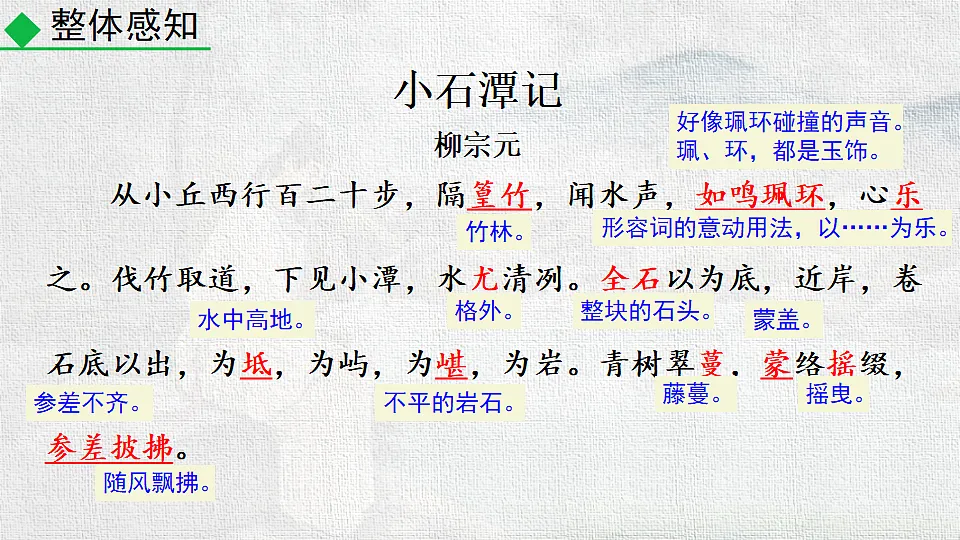 整体感知
小石潭记
柳宗元
好像珮环碰撞的声音。
珮、环，都是玉饰。
从小丘西行百二十步，隔篁竹，闻水声，如鸣珮环，心乐
竹林。
形容词的意动用法，以……为乐。
之。伐竹取道，下见小潭，水尤清冽。全石以为底，近岸，卷
水中高地。
格外。
整块的石头。
蒙盖。
石底以出，为坻，为屿，为嵁，为岩。青树翠蔓，蒙络摇缀，
参差不齐。
不平的岩石。
藤蔓。
摇曳。
参差披拂。
随风飘拂。